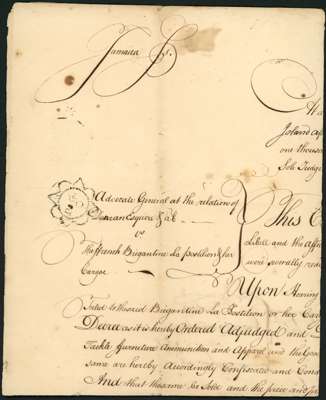 Jamaica Ss.
At a
Island of
one thousand
Sole Judge
Advocate General at the relation of
Esquire & al
vs
The French Brigantine La Postilion & her
Cargoe
This C
Libell and the
were severally read
Upon Hearing
to the said Brigantine La Postilion or her Car
Decree as it is hereby Ordered Adjudged and
Tackle furniture Ammunition and Apparel and the Goo
same are hereby Accordingly Confiscated and Cond
And that the same be Sold and the